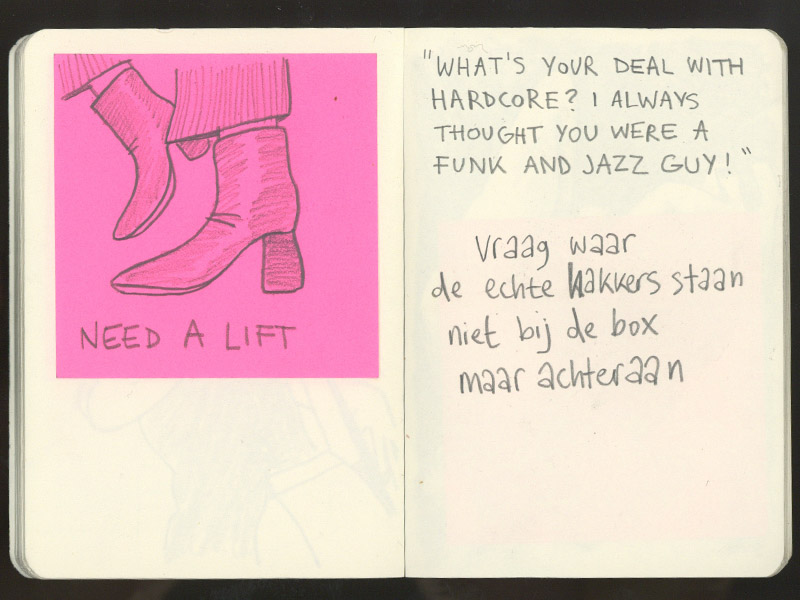 NEED A LIFT
"WHAT'S YOUR DEAL WITH
HARDCORE? I ALWAYS
THOUGHT YOU WERE A
FUNK AND JAZZ GUY!"
Vraag waar
de echte hakkers staan
niet bij de box
maar achteraan